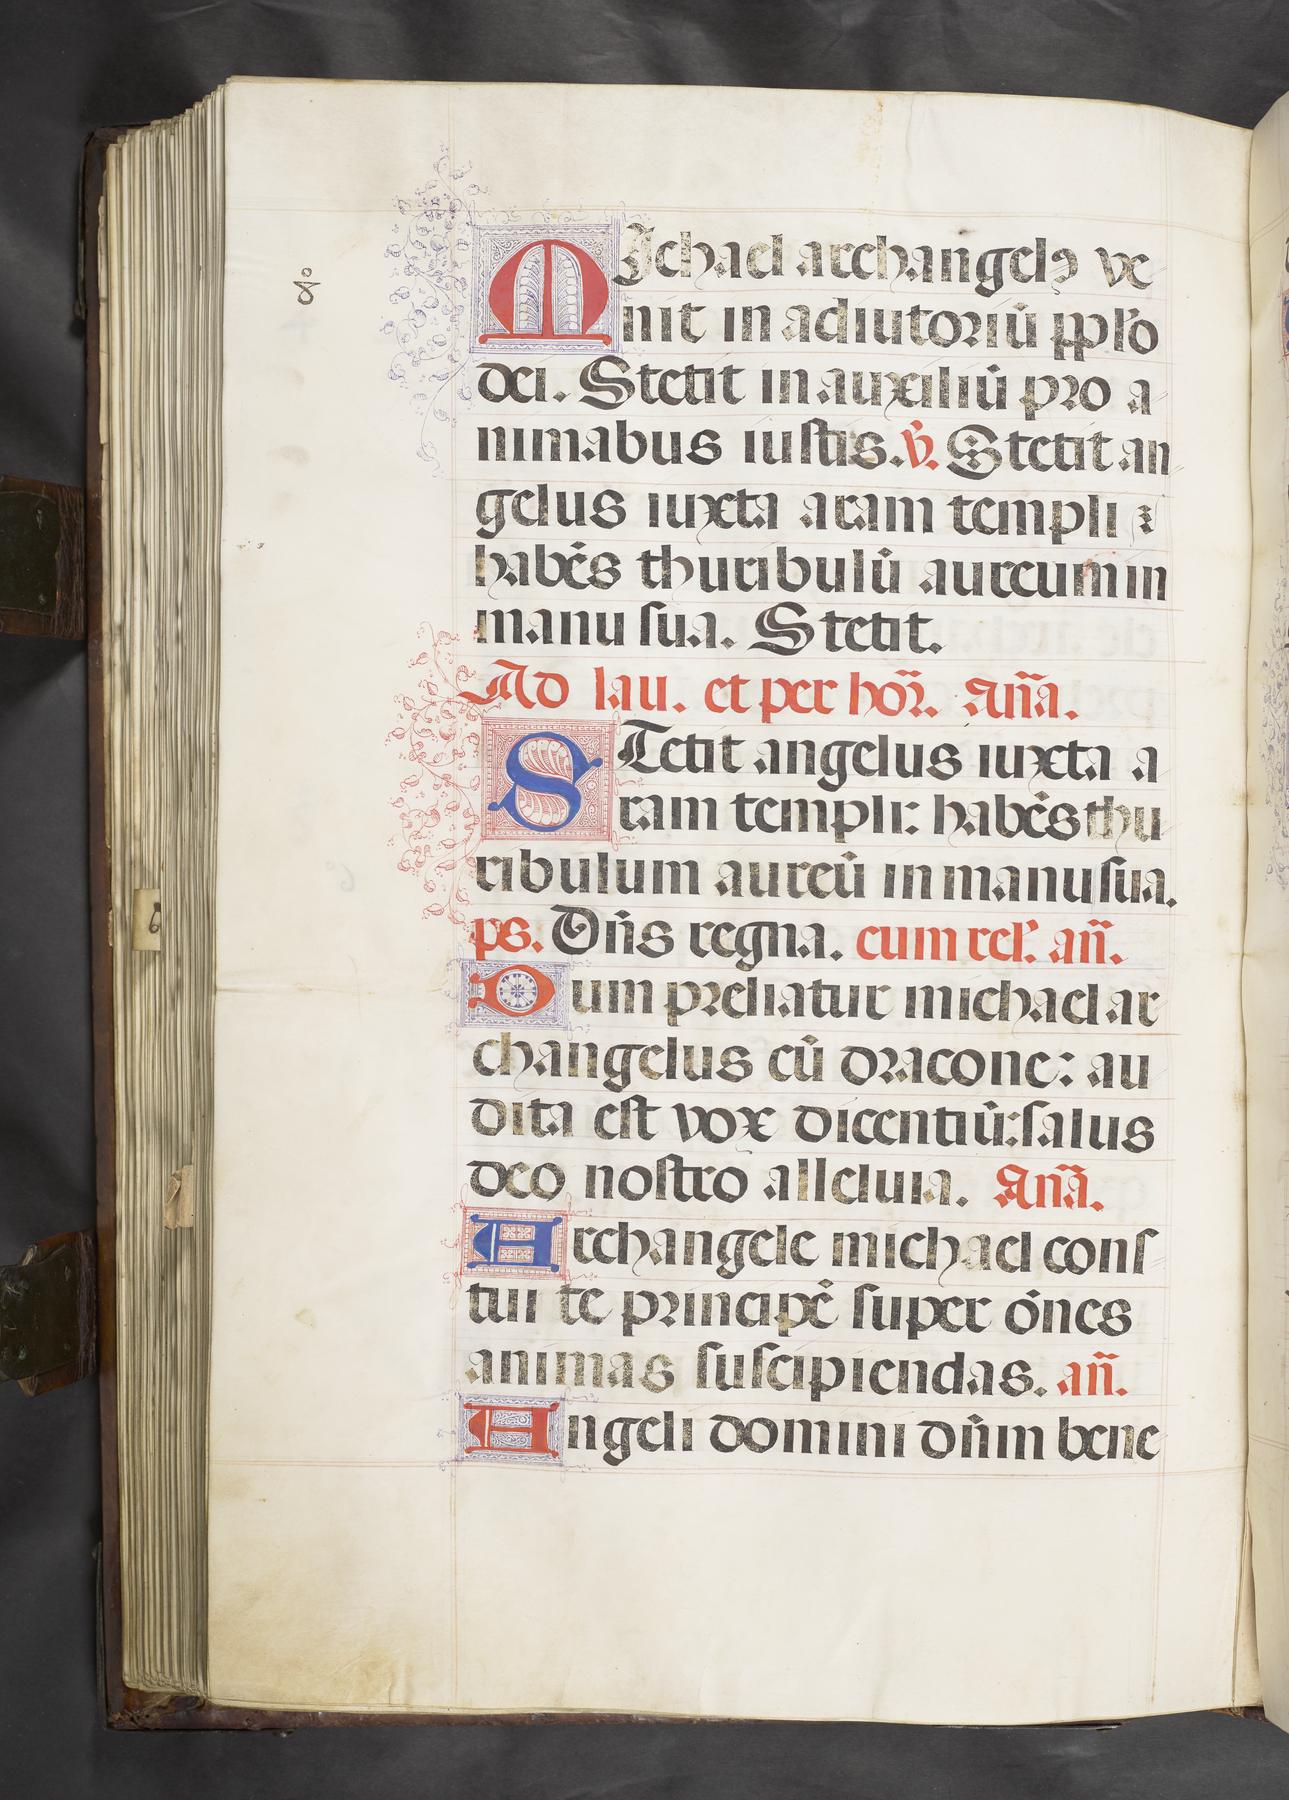 8º
MIchael archangelꝰ ve
nit in adiutoriū pplo
dei. Stetit in auxiliū pro a
nimabus iustis. v̄. Stetit an
gelus iuxta aram templi ⁊
habēs thuribulū aureum in
manu sua. Stetit.
Ad lau. et per hor̄. An̄a.
STetit angelus iuxta a
ram templi: habēs thu
ribulum aureū in manu sua.
ps. Dn̄s regna. cum rel'. an̄.
Dum preliatur michael ar
changelus cū dracone: au
dita est vox dicentiū: salus
deo nostro alleluia. An̄a.
Archangele michael cons
tui te principē super ōnes
animas suscipiendas. an̄.
Angeli domini dn̄m bene
6